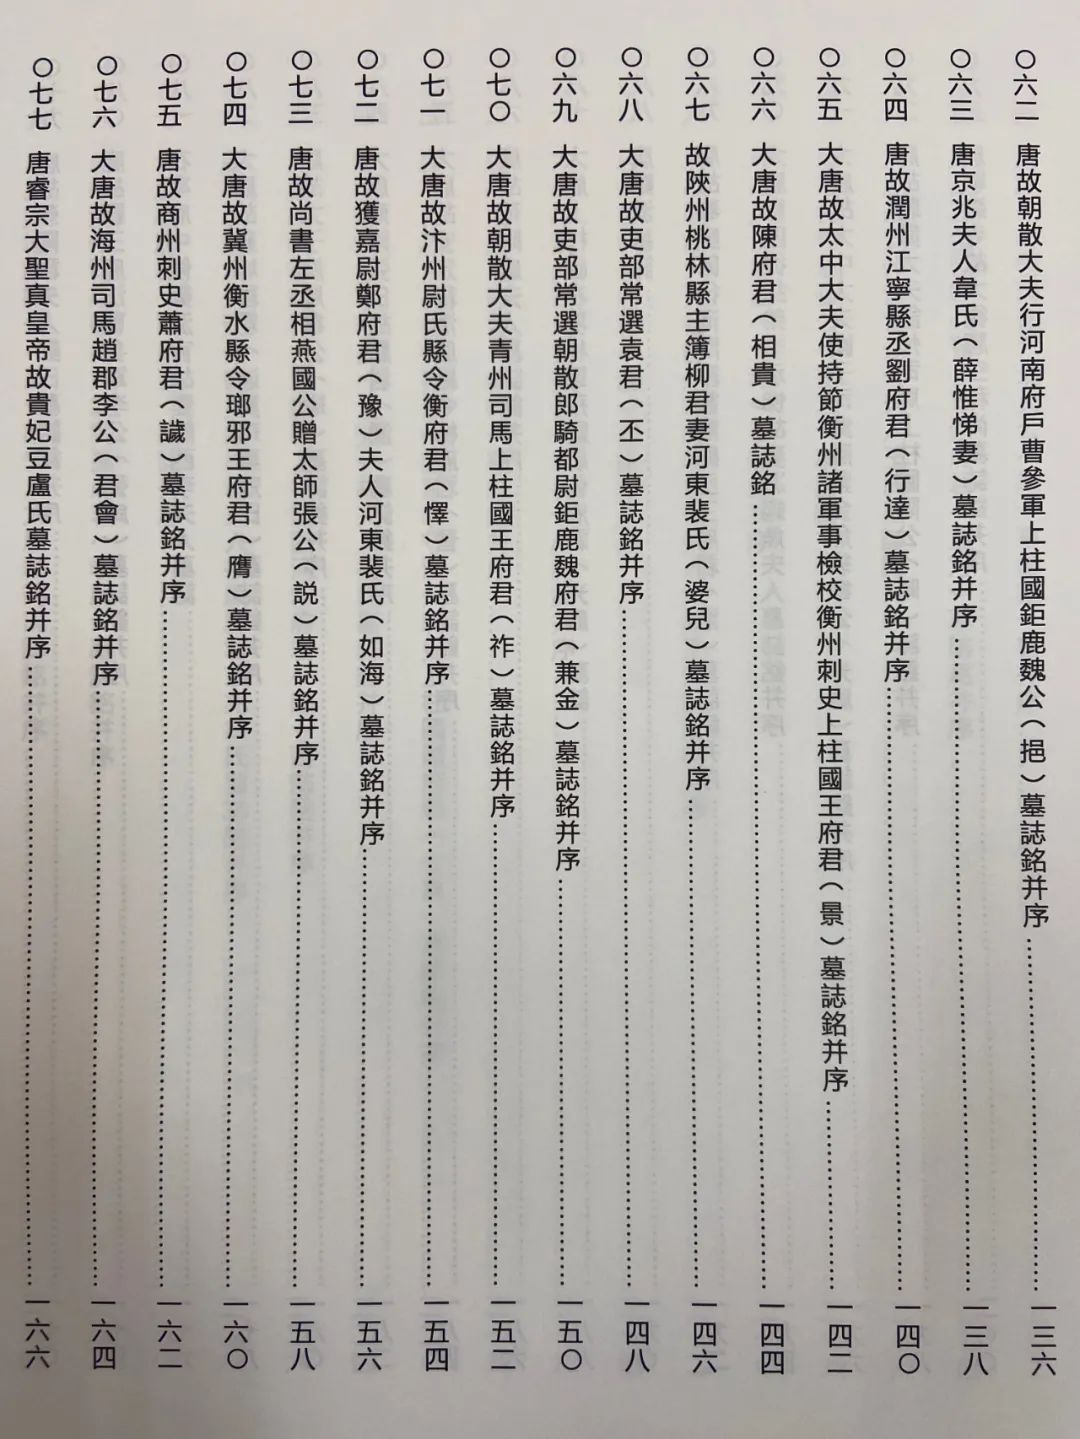 〇六二 唐故朝散大夫行河南府戶曹參軍上柱國鉅鹿魏公（挹）墓誌銘并序……一三六
〇六三 唐京兆夫人韋氏（薛惟悌妻）墓誌銘并序……一三八
〇六四 唐故潤州江寧縣丞劉府君（行達）墓誌銘并序……一四〇
〇六五 大唐故太中大夫使持節衡州諸軍事檢校衡州刺史上柱國王府君（景）墓誌銘并序……一四二
〇六六 大唐故陳府君（相貴）墓誌銘……一四四
〇六七 故陝州桃林縣主簿柳君妻河東裴氏（婆兒）墓誌銘并序……一四六
〇六八 大唐故吏部常選袁君（丕）墓誌銘并序……一四八
〇六九 大唐故吏部常選朝散郎騎都尉鉅鹿魏府君（兼金）墓誌銘并序……一五〇
〇七〇 大唐故朝散大夫青州司馬上柱國王府君（祚）墓誌銘并序……一五二
〇七一 大唐故汴州尉氏縣令衡府君（懌）墓誌銘并序……一五四
〇七二 唐故獲嘉尉鄭府君（豫）夫人河東裴氏（如海）墓誌銘并序……一五六
〇七三 唐故尚書左丞相燕國公贈太師張公（説）墓誌銘并序……一五八
〇七四 大唐故冀州衡水縣令瑯邪王府君（膺）墓誌銘并序……一六〇
〇七五 唐故商州刺史蕭府君（諴）墓誌銘并序……一六二
〇七六 大唐故海州司馬趙郡李公（君會）墓誌銘并序……一六四
〇七七 唐睿宗大聖真皇帝故貴妃豆盧氏墓誌銘并序……一六六